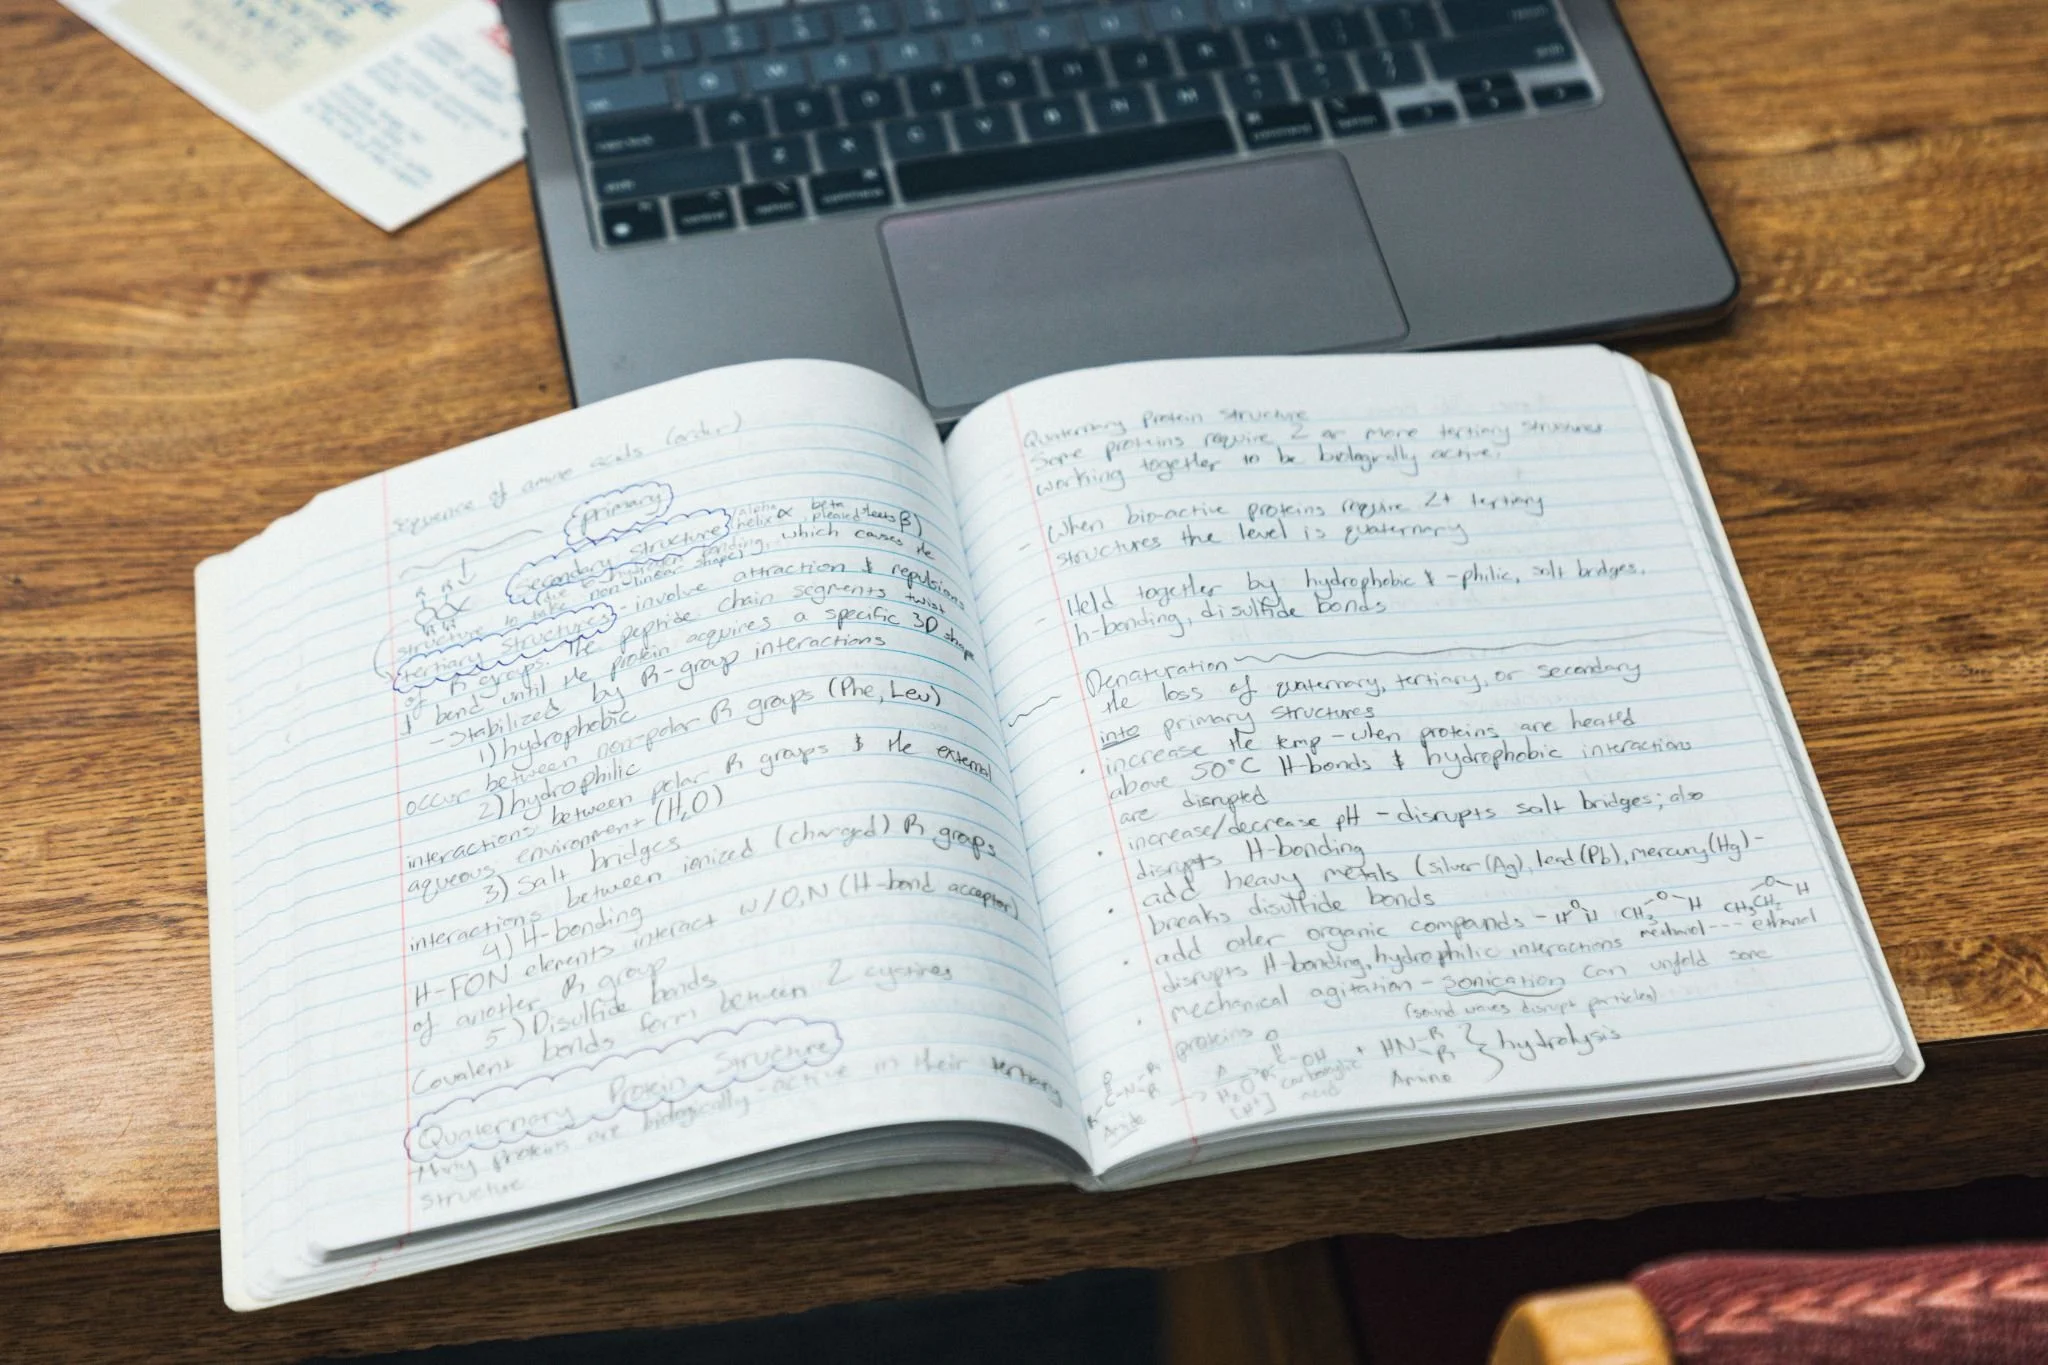 Sequence of amino acids (order)
primary
Secondary structure (alpha helix α beta pleated sheets β)
(due to hydrogen bonding, which causes the
structure to take non-linear shape)
tertiary structures - involve attraction & repulsions
of R groups. The peptide chain segments twist
& bend until the protein acquires a specific 3D shape
- Stabilized by R-group interactions
1) hydrophobic
occur between non-polar R groups (Phe, Leu)
2) hydrophilic
interactions between polar R groups & the external
aqueous environment (H2O)
3) Salt bridges
interactions between ionized (charged) R groups
4) H-bonding
H-FON elements interact w/O,N (H-bond acceptor)
of another R group
5) Disulfide bonds
Covalent bonds form between 2 cystines
Quaternary Protein Structure
Many proteins are biologically-active in their tertiary
structure
Quaternary Protein Structure
Some proteins require 2 or more tertiary structures
working together to be biologically active.
- When bio-active proteins require 2+ tertiary
structures the level is quaternary
- Held together by hydrophobic & -philic, salt bridges,
h-bonding, disulfide bonds
Denaturation
the loss of quaternary, tertiary, or secondary
into primary structures
• increase the temp - when proteins are heated
above 50°C H-bonds & hydrophobic interactions
are disrupted
• increase/decrease pH - disrupts salt bridges; also
disrupts H-bonding
• add heavy metals (silver (Ag), lead (Pb), mercury (Hg) -
breaks disulfide bonds
• add other organic compounds - H O H CH3 O H CH3CH2 O H
methanol --- ethanol
disrupts H-bonding, hydrophilic interactions
• mechanical agitation - sonication can unfold some
(sound waves disrupt particles)
proteins
R C O N R R → Δ H2O [H+] R C O OH + HN R R } hydrolysis
Amide carboxylic acid Amino
command
option
control
option
command